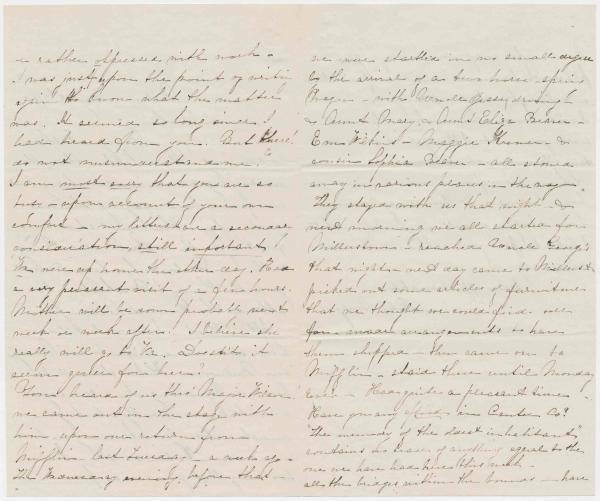 & rather oppressed with work -
I was just upon the point of writing
again to know what the matter
was. It seemed so long since I
had heard from you. But there!
do not misunderstand me!
I am most sorry that you are so
busy - upon account of your own
comfort - my letters are a secondary
consideration, still important!
We were up home the other day. Had
a very pleasant visit of a few hours.
Mother will be down probably next
week or week after. I believe she
really will go to  . Doesn't it
seem queer for her?
You heard of us this Major
we came out in the stage with
him upon our return from
Mifflin last Tuesday - a week ago.
The Thursday evening, before that -
we were startled in no small degree
by the arrival of a two horse spring
Wagon - with Uncle Jesse driving
& Aunt Mary, & Aunt Eliza Beaver -
Em  - Maggie  - &
cousin Sophia Beaver - all stowed
away in various places in the wagon.
They stayed with us that night &
next morning we all started for
Millerstown - reached Uncle George's
that night - next day came to
picked out some articles of furniture
that we thought we could find use
for - made arrangements to have
them shipped - then came on to
Mifflin - staid there until Monday
Eve - Had quite a pleasant time -
Have you any  in Centre Co?
"The memory of the oldest inhabitant"
contains no trace of anything equal to the
one we have had here this week -
all the bridges within the bounds - have